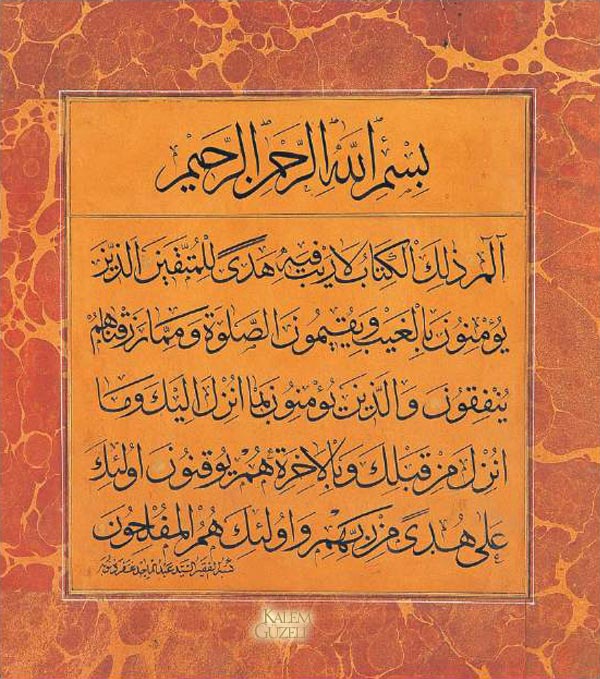 بِسْمِ اللهِ الرَّحْمٰنِ الرَّحِيمِ
آلم ذٰلِكَ الْكِتَابُ لَا رَيْبَ فِيهِ هُدًى لِلْمُتَّقِينَ الَّذِينَ
يُؤْمِنُونَ بِالْغَيْبِ وَيُقِيمُونَ الصَّلٰوةَ وَمِمَّا رَزَقْنَاهُمْ
يُنْفِقُونَ وَالَّذِينَ يُؤْمِنُونَ بِمَا اُنْزِلَ اِلَيْكَ وَمَا
اُنْزِلَ مِنْ قَبْلِكَ وَبِالْاٰخِرَةِ هُمْ يُوقِنُونَ اُولٰئِكَ
عَلٰى هُدًى مِنْ رَبِّهِمْ وَاُولٰئِكَ هُمُ الْمُفْلِحُونَ
الفقير السيد عبد الماجد
KALEM
GÜZELİ